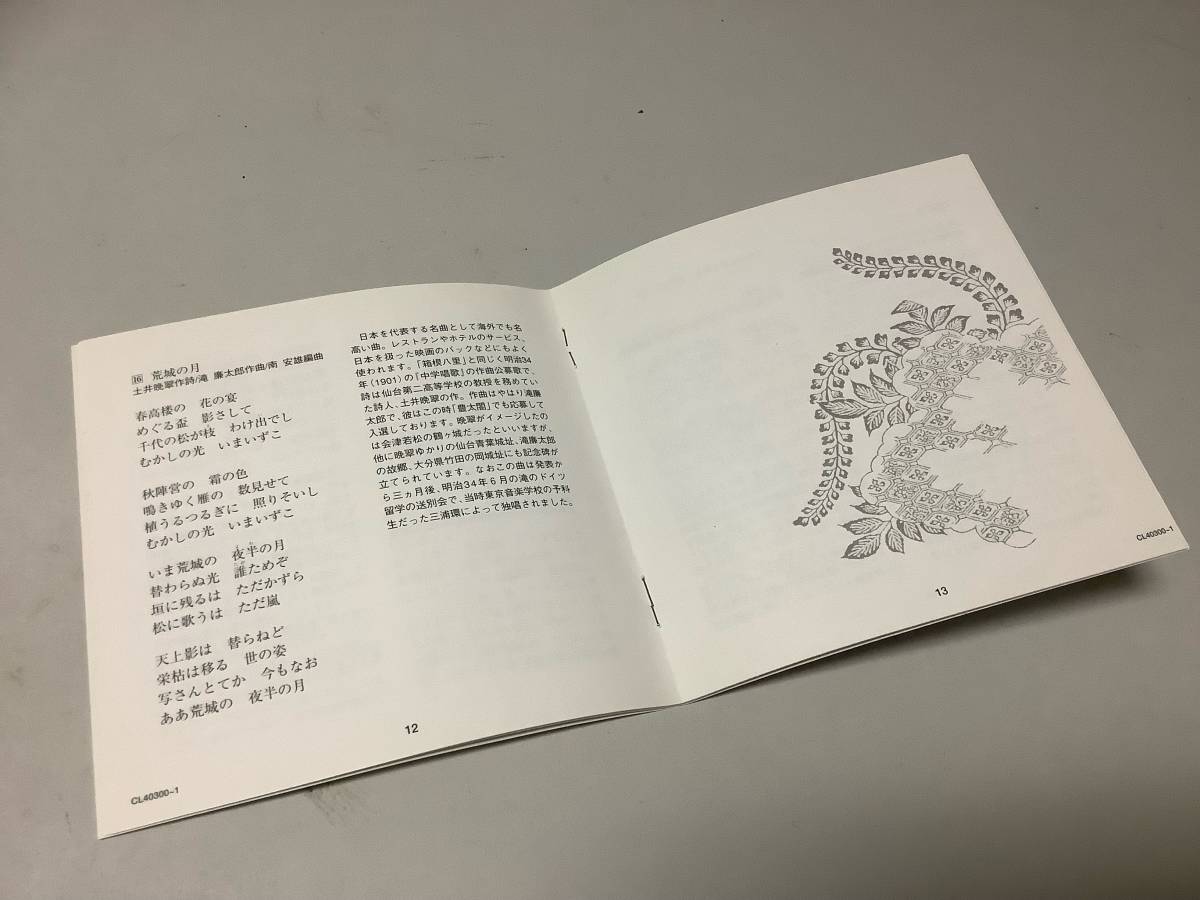 16 荒城の月
土井晩翠作詩/滝 廉太郎作曲/南 安雄編曲
春高楼の 花の宴
めぐる盃 影さして
千代の松が枝 わけ出でし
むかしの光 いまいずこ
秋陣営の 霜の色
鳴きゆく雁の 数見せて
植うるつるぎに 照りそいし
むかしの光 いまいずこ
いま荒城の 夜半の月
替わらぬ光 誰ためぞ
垣に残るは ただかずら
松に歌うは ただ嵐
天上影は 替らねど
栄枯は移る 世の姿
写さんとてか 今もなお
ああ荒城の 夜半の月
日本を代表する名曲として海外でも名
高い曲。レストランやホテルのサービス、
日本を扱った映画のバックなどにもよく
使われます。「箱根八里」と同じく明治34
年(1901)の「中学唱歌」の作曲公募歌で、
詩は仙台第二高等学校の教授を務めてい
た詩人、土井晩翠の作。作曲はやはり滝廉
太郎で、彼はこの時「豊太閤」でも応募して
入選しております。晩翠がイメージしたの
は会津若松の鶴ヶ城だったといいますが、
他に晩翠ゆかりの仙台青葉城址、滝廉太郎
の故郷、大分県竹田の岡城址にも記念碑が
立てられています。なおこの曲は発表か
ら三ヵ月後、明治34年6月の滝のドイツ
留学の送別会で、当時東京音楽学校の予科
生だった三浦環によって独唱されました。
12
CL40300~1
13
CL40300~1